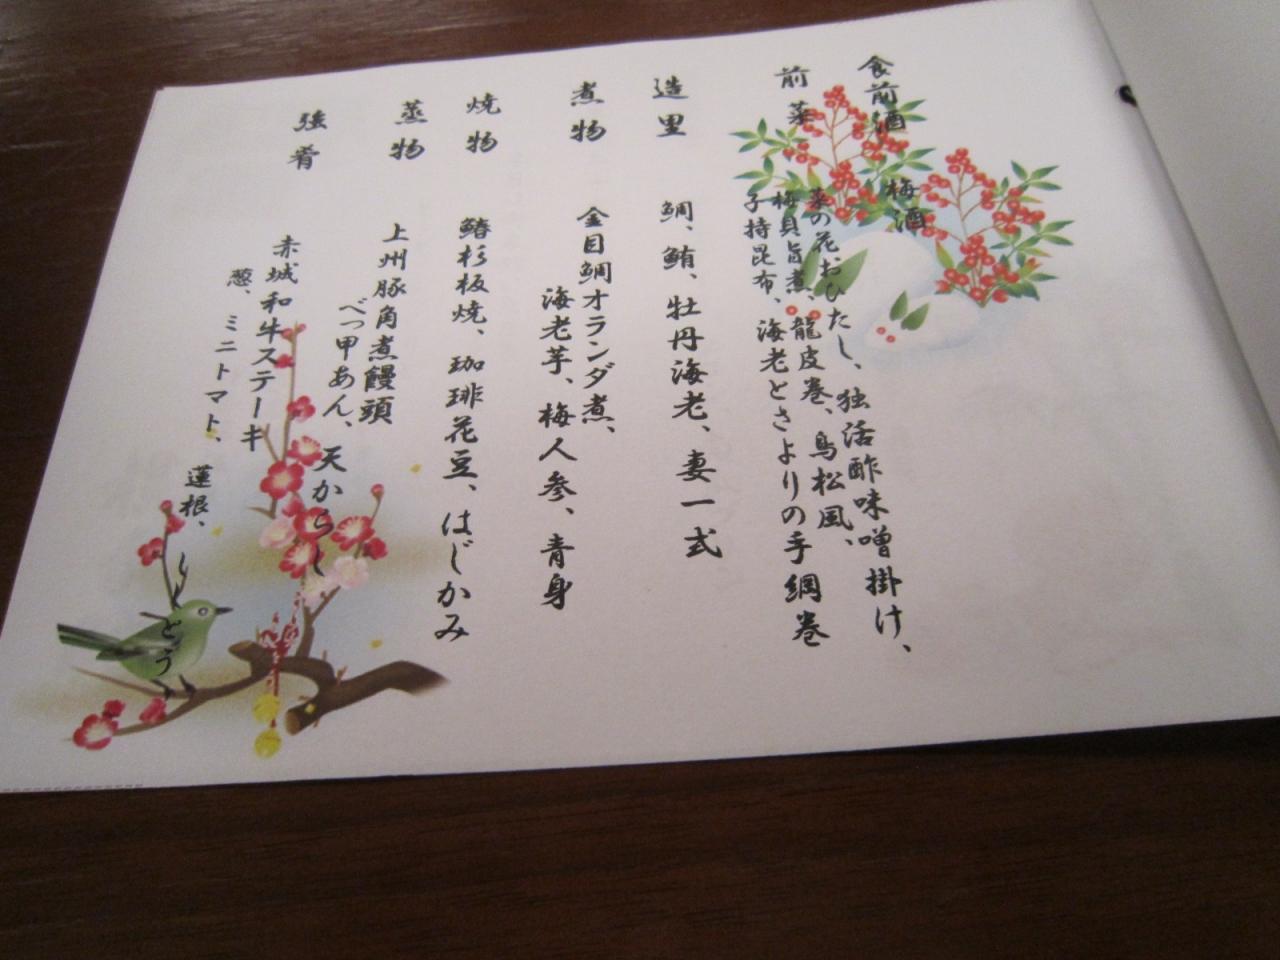 食前酒　梅酒
前菜　菜の花おひたし、独活酢味噌掛け、
梅貝旨煮、龍皮巻、鳥松風、
子持昆布、海老とさよりの手綱巻
造里　鯛、鮪、牡丹海老、妻一式
煮物　金目鯛オランダ煮、
海老芋、梅人参、青身
焼物　鰆杉板焼、珈琲花豆、はじかみ
蒸物　上州豚角煮饅頭
べっ甲あん、天からし
強肴　赤城和牛ステーキ
葱、ミニトマト、蓮根、ししとう